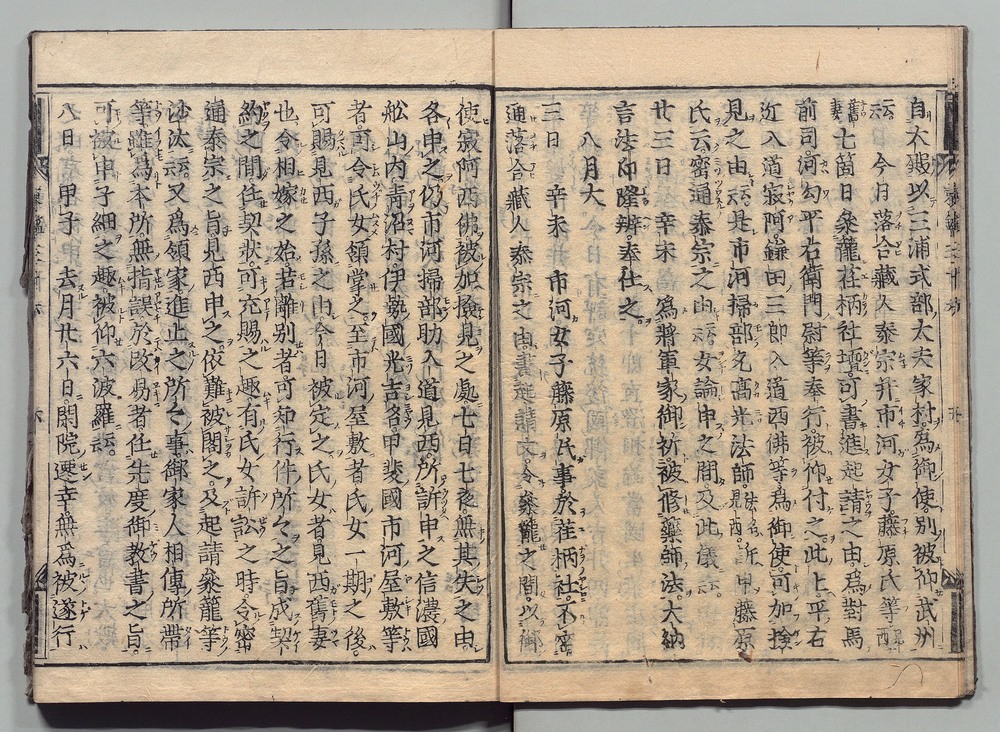 自大殿以三浦式部大夫家村為御使別被仰武州
云云今日落合藏人泰宗并市河女子藤原氏等
七箇日參籠荏柄社壇可書進起請之由為對馬
前司河勾平右衛門尉等奉行被仰付之此上平右
近入道寂阿鎌田三郎入道西佛等為御使可加撿
見之由云云是市河掃部允高光法師法名見西訴申藤原
氏云密通泰宗之由云云女論申之間及此儀云云
廿三日 辛未 為將軍家御祈被修藥師法大納
言法印隆辨奉仕之
八月大
三日 辛未 市河女子藤原氏事於荏柄社不密
通落合藏人泰宗之由書起請文令參籠之間以御
使寂阿西佛被加撿見之處七日七夜無其失之由
各申之仍市河掃部助入道見西所訴申之信濃國
舩山内青沼村伊勢國光吉名甲斐國市河屋敷等
者可令氏女領掌之至市河屋敷者氏女一期之後
可賜見西子孫之由今日被定之氏女者見西舊妻
也令相嫁之始若離別者可知行件所々之旨成契
約之間任契状可充賜之趣有氏女訴訟之時令密
通泰宗之旨見西申之依難被閣之及起請參籠等
沙汰云云又為領家進止之所々事御家人相傳所帶
等雖為本所無指誤於改易者任先度御教書之旨
可被申子細之趣被仰六波羅云云
八日 甲子 去月廿六日閑院遷幸無為被遂行